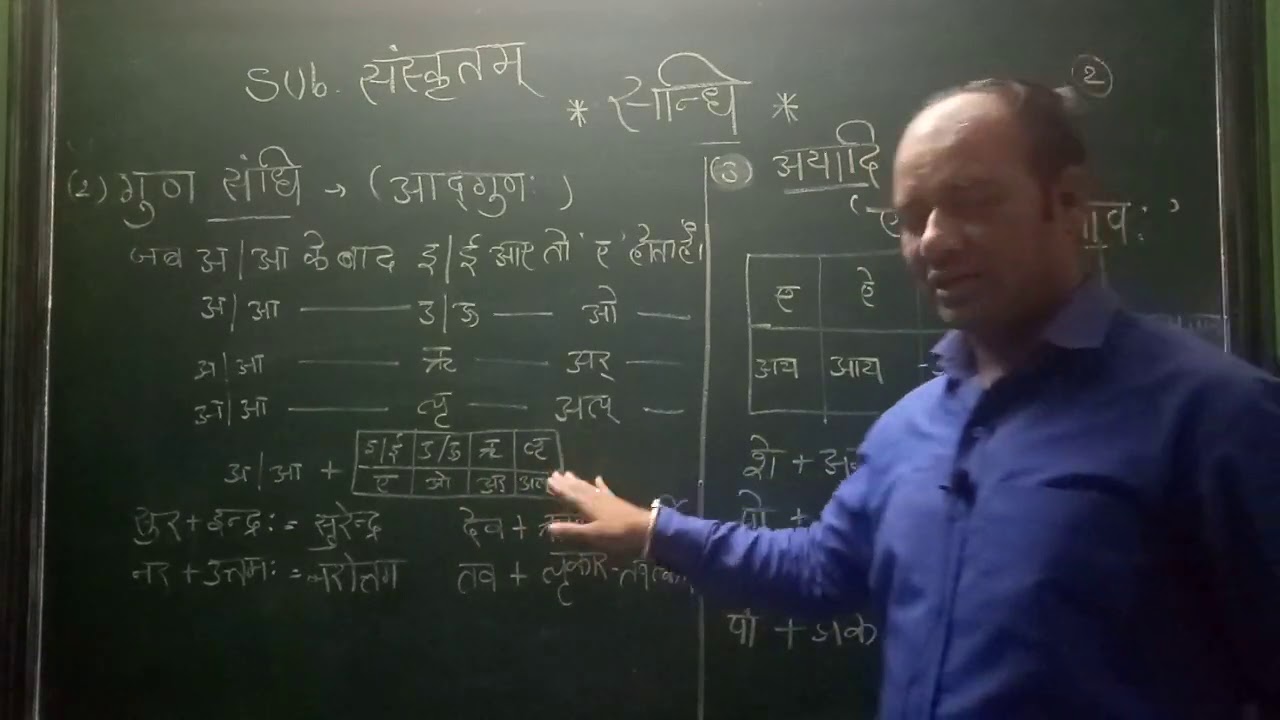 Sub. संस्कृतम्
* सन्धि *
2
(2) गुण संधि → (आद्गुणः)
जब अ/आ के बाद इ/ई आए तो 'ए' होता है।
अ/आ —— उ/ऊ —— ओ ——
अ/आ —— ऋ —— अर् ——
अ/आ —— लृ —— अल् ——
अ/आ +
इ/ई उ/ऊ ऋ लृ
ए ओ अर्
सुर + इन्द्रः = सुरेन्द्र
देव +
नर + उत्तमः = नरोत्तम
तव + लृकार -
(3) अयादि
ए ऐ
अय आय
शे +
पो +
पौ + अक